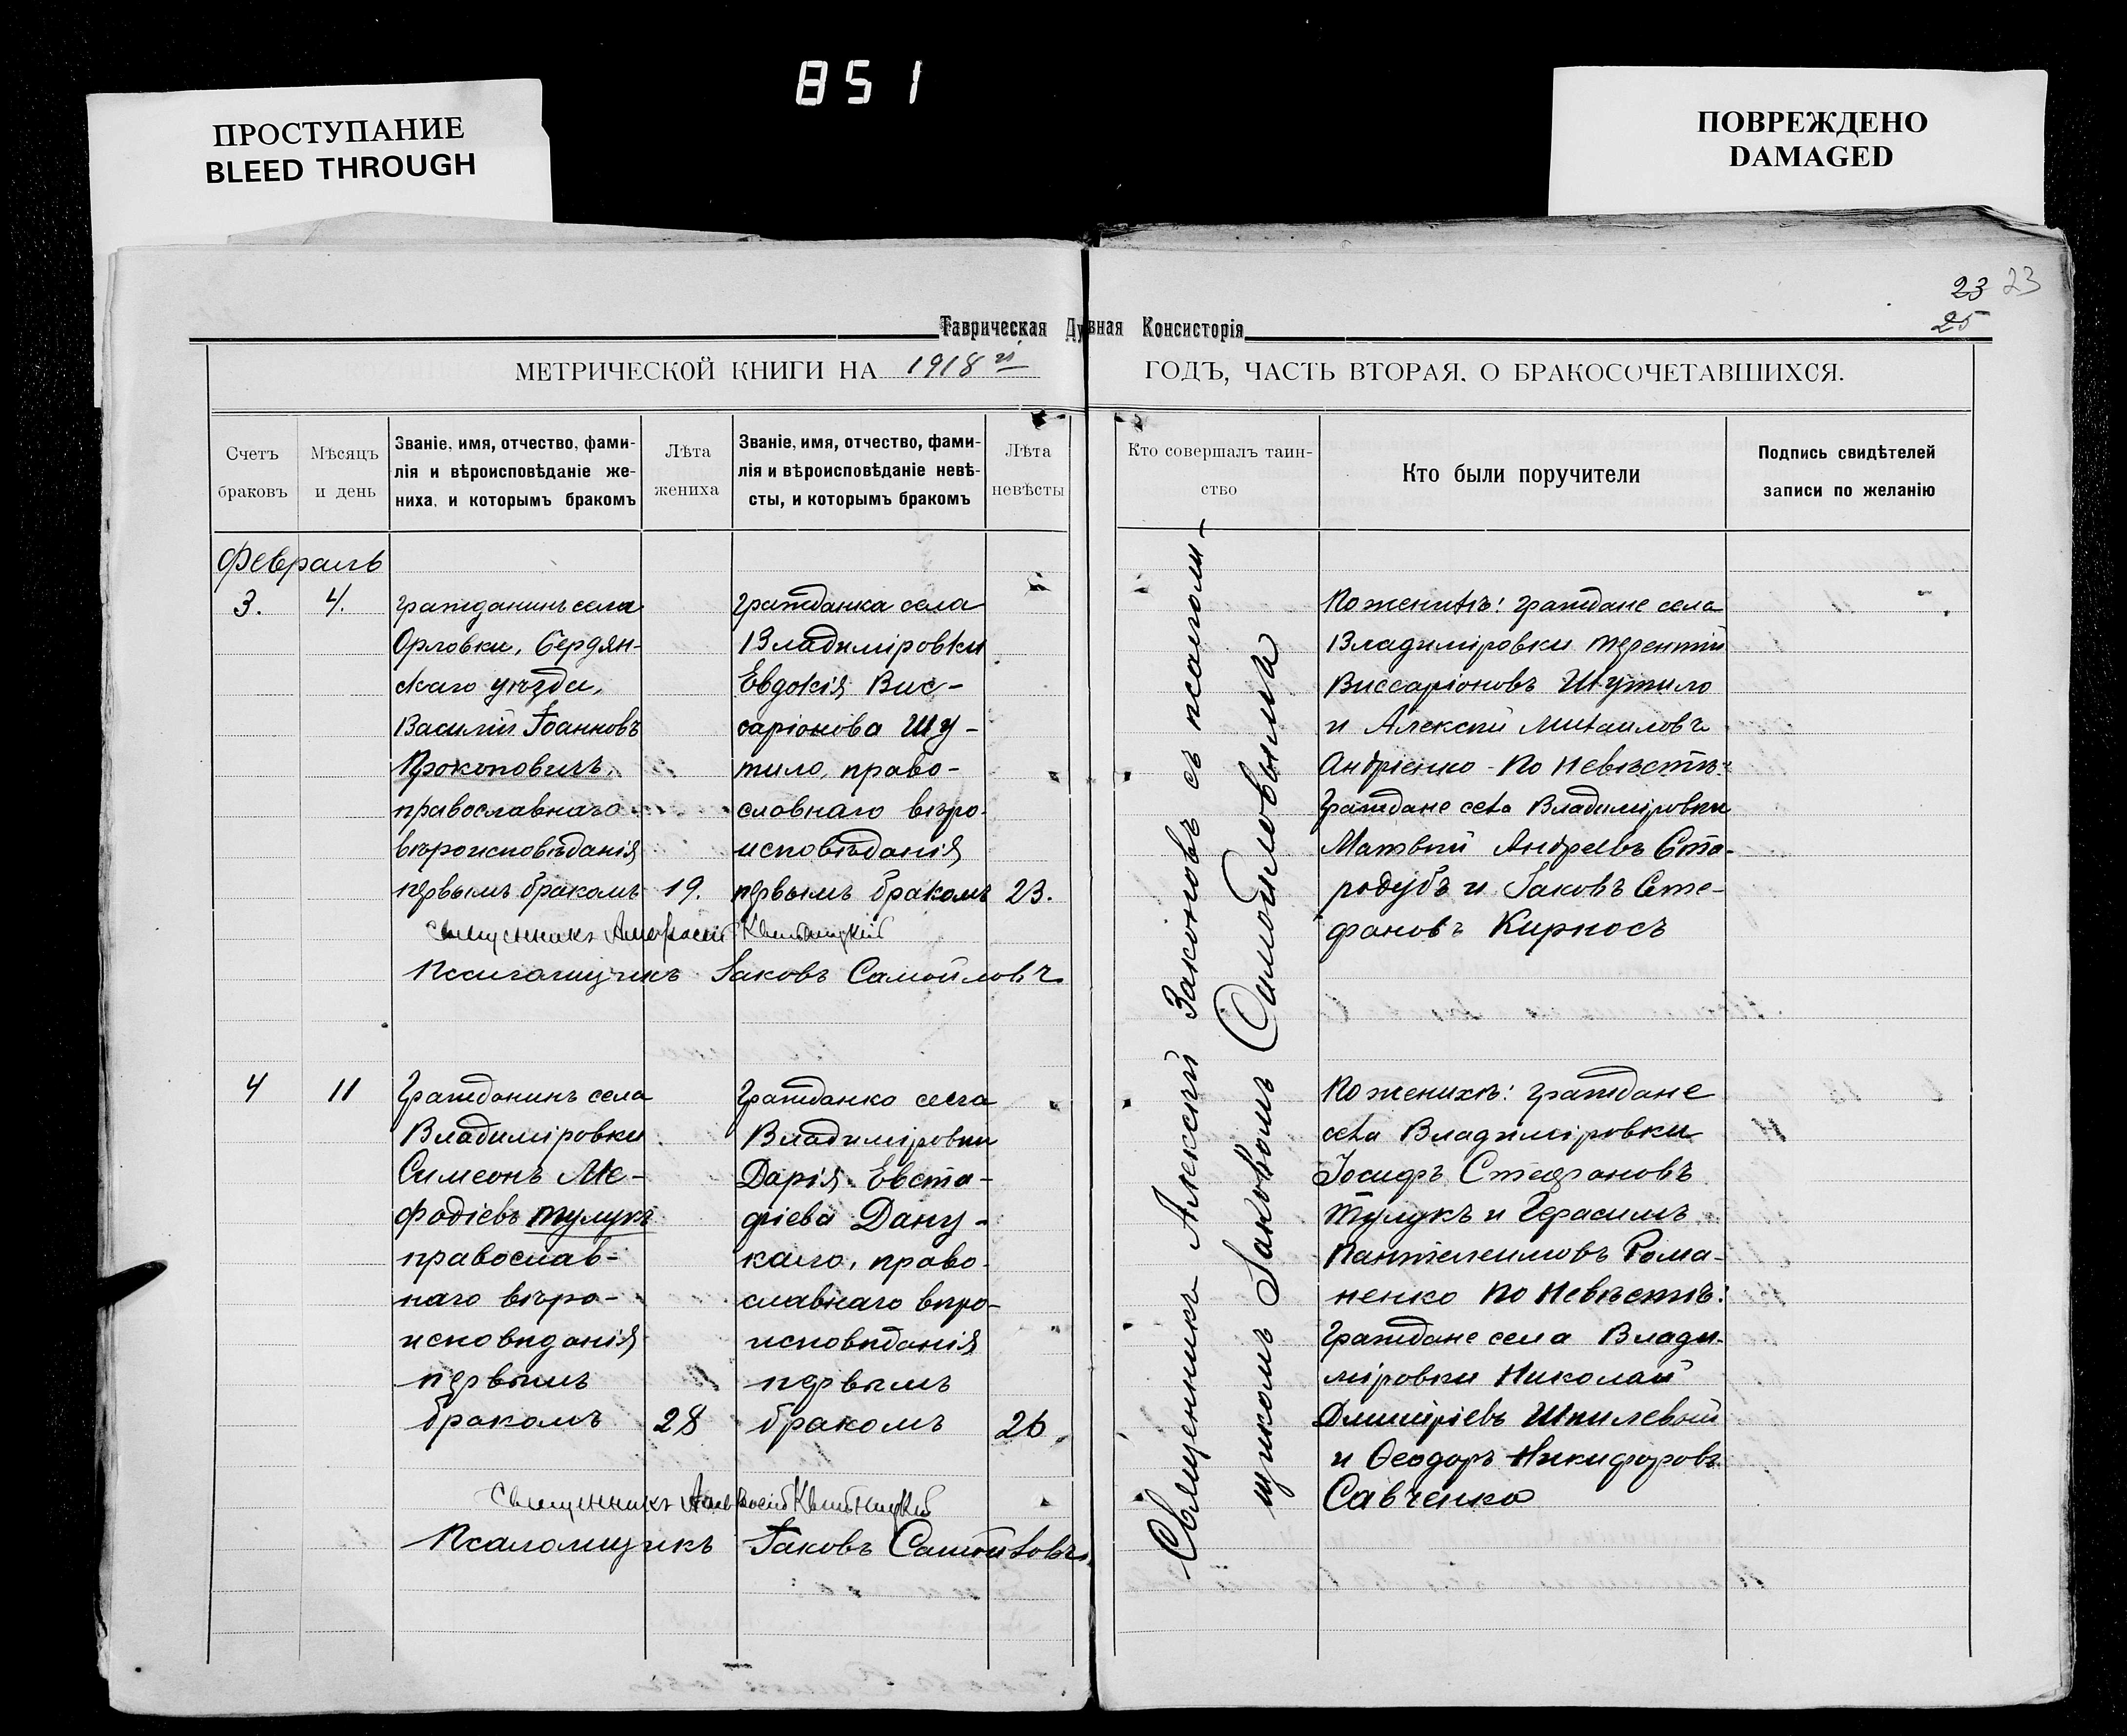 851
ПРОСТУПАНИЕ
BLEED THROUGH
ПОВРЕЖДЕНО
DAMAGED
23 23
25
Таврическая Духовная Консисторія
МЕТРИЧЕСКОЙ КНИГИ НА 1918 й ГОДЪ, ЧАСТЬ ВТОРАЯ, О БРАКОСОЧЕТАВШИХСЯ.
Счетъ
браковъ
Мѣсяцъ
и день
Званіе, имя, отчество, фами-
лія и вѣроисповѣданіе же-
ниха, и которымъ бракомъ
Лѣта
жениха
Званіе, имя, отчество, фами-
лія и вѣроисповѣданіе невѣ-
сты, и которымъ бракомъ
Лѣта
невѣсты
Кто совершалъ таин-
ство
Кто были поручители
Подпись свидѣтелей
записи по желанію
Февраль
3.
4.
Гражданинъ села
Орловки, Бердян-
скаго уѣзда,
Василій Іоанновъ
Прокоповичъ,
православнаго
вѣроисповѣданія
первымъ бракомъ
19.
Гражданка села
Владиміровки
Евдокія Вис-
саріонова Шу-
тило, право-
славнаго вѣро-
исповѣданія
первымъ бракомъ
23.
Священникъ
Псаломщикъ Іаковъ Самойловъ
По женихѣ: граждане села
Владиміровки Терентій
Виссаріоновъ Шутило
и Алексѣй Михаиловъ
Андріенко - По невѣстѣ:
Граждане села Владиміровки
Матвѣй Андреевъ Ста-
родубъ и Іаковъ Сте-
фановъ Кирносъ
4
11
Гражданинъ села
Владиміровки
Симеонъ Ме-
фодіевъ Тулукъ
православ-
наго вѣро-
исповѣданія
первымъ
бракомъ
28
Гражданка села
Владиміровки
Дарія Евста-
фіева Дану-
кало, право-
славнаго вѣро-
исповѣданія
первымъ
бракомъ
26
Священникъ
Псаломщикъ Іаковъ Самойловъ
По женихѣ: граждане
села Владиміровки
Іосифъ Стефановъ
Тулукъ и Герасимъ
Пантелеимовъ Рома-
ненко По невѣстѣ:
Граждане села Влади-
міровки Николай
Дмитріевъ Шпилевой
и Ѳеодоръ Никифоровъ
Савченко
Священникъ Алексѣй Законовъ съ псалом-
щикомъ Іаковомъ Самойловымъ